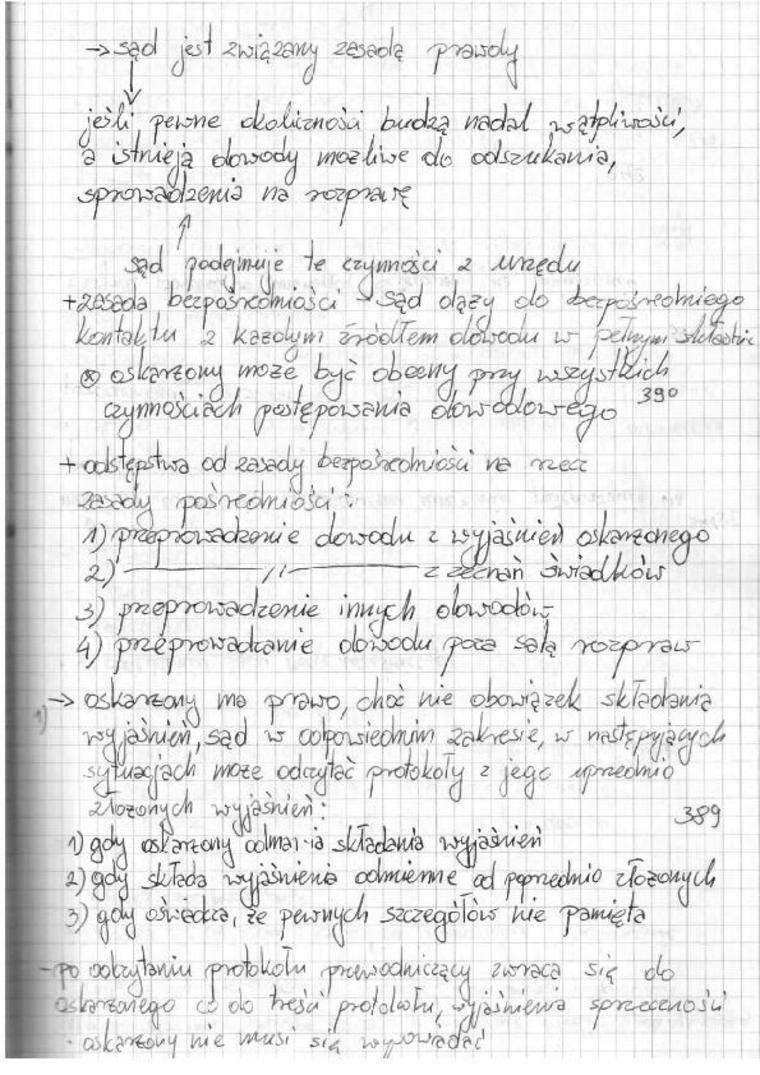 → sąd jest związany zasadą prawdy
jeśli pewne okoliczności budzą nadal wątpliwości,
a istnieją dowody możliwe do odszukania,
sprowadzenia na rozprawę
sąd podejmuje te czynności z urzędu
+ zasada bezpośredniości → sąd dąży do bezpośredniego
kontaktu z każdym źródłem dowodu w pełnym składzie
⊗ oskarżony może być obecny przy wszystkich
czynnościach postępowania dowodowego 390
+ odstępstwa od zasady bezpośredniości na rzecz
zasady pośredniości:
1) przeprowadzenie dowodu z wyjaśnień oskarżonego
2) ——— // ——— z zeznań świadków
3) przeprowadzenie innych dowodów
4) przeprowadzanie dowodu poza salą rozpraw
1) → oskarżony ma prawo, choć nie obowiązek składania
wyjaśnień, sąd w odpowiednim zakresie, w następujących
sytuacjach może odczytać protokoły z jego uprzednio
złożonych wyjaśnień: 389
1) gdy oskarżony odmawia składania wyjaśnień
2) gdy składa wyjaśnienia odmienne od poprzednio złożonych
3) gdy oświadcza, że pewnych szczegółów nie pamięta
- po odczytaniu protokołu przewodniczący zwraca się do
oskarżonego co do treści protokołu, wyjaśnienia sprzeczności
· oskarżony nie musi się wypowiadać